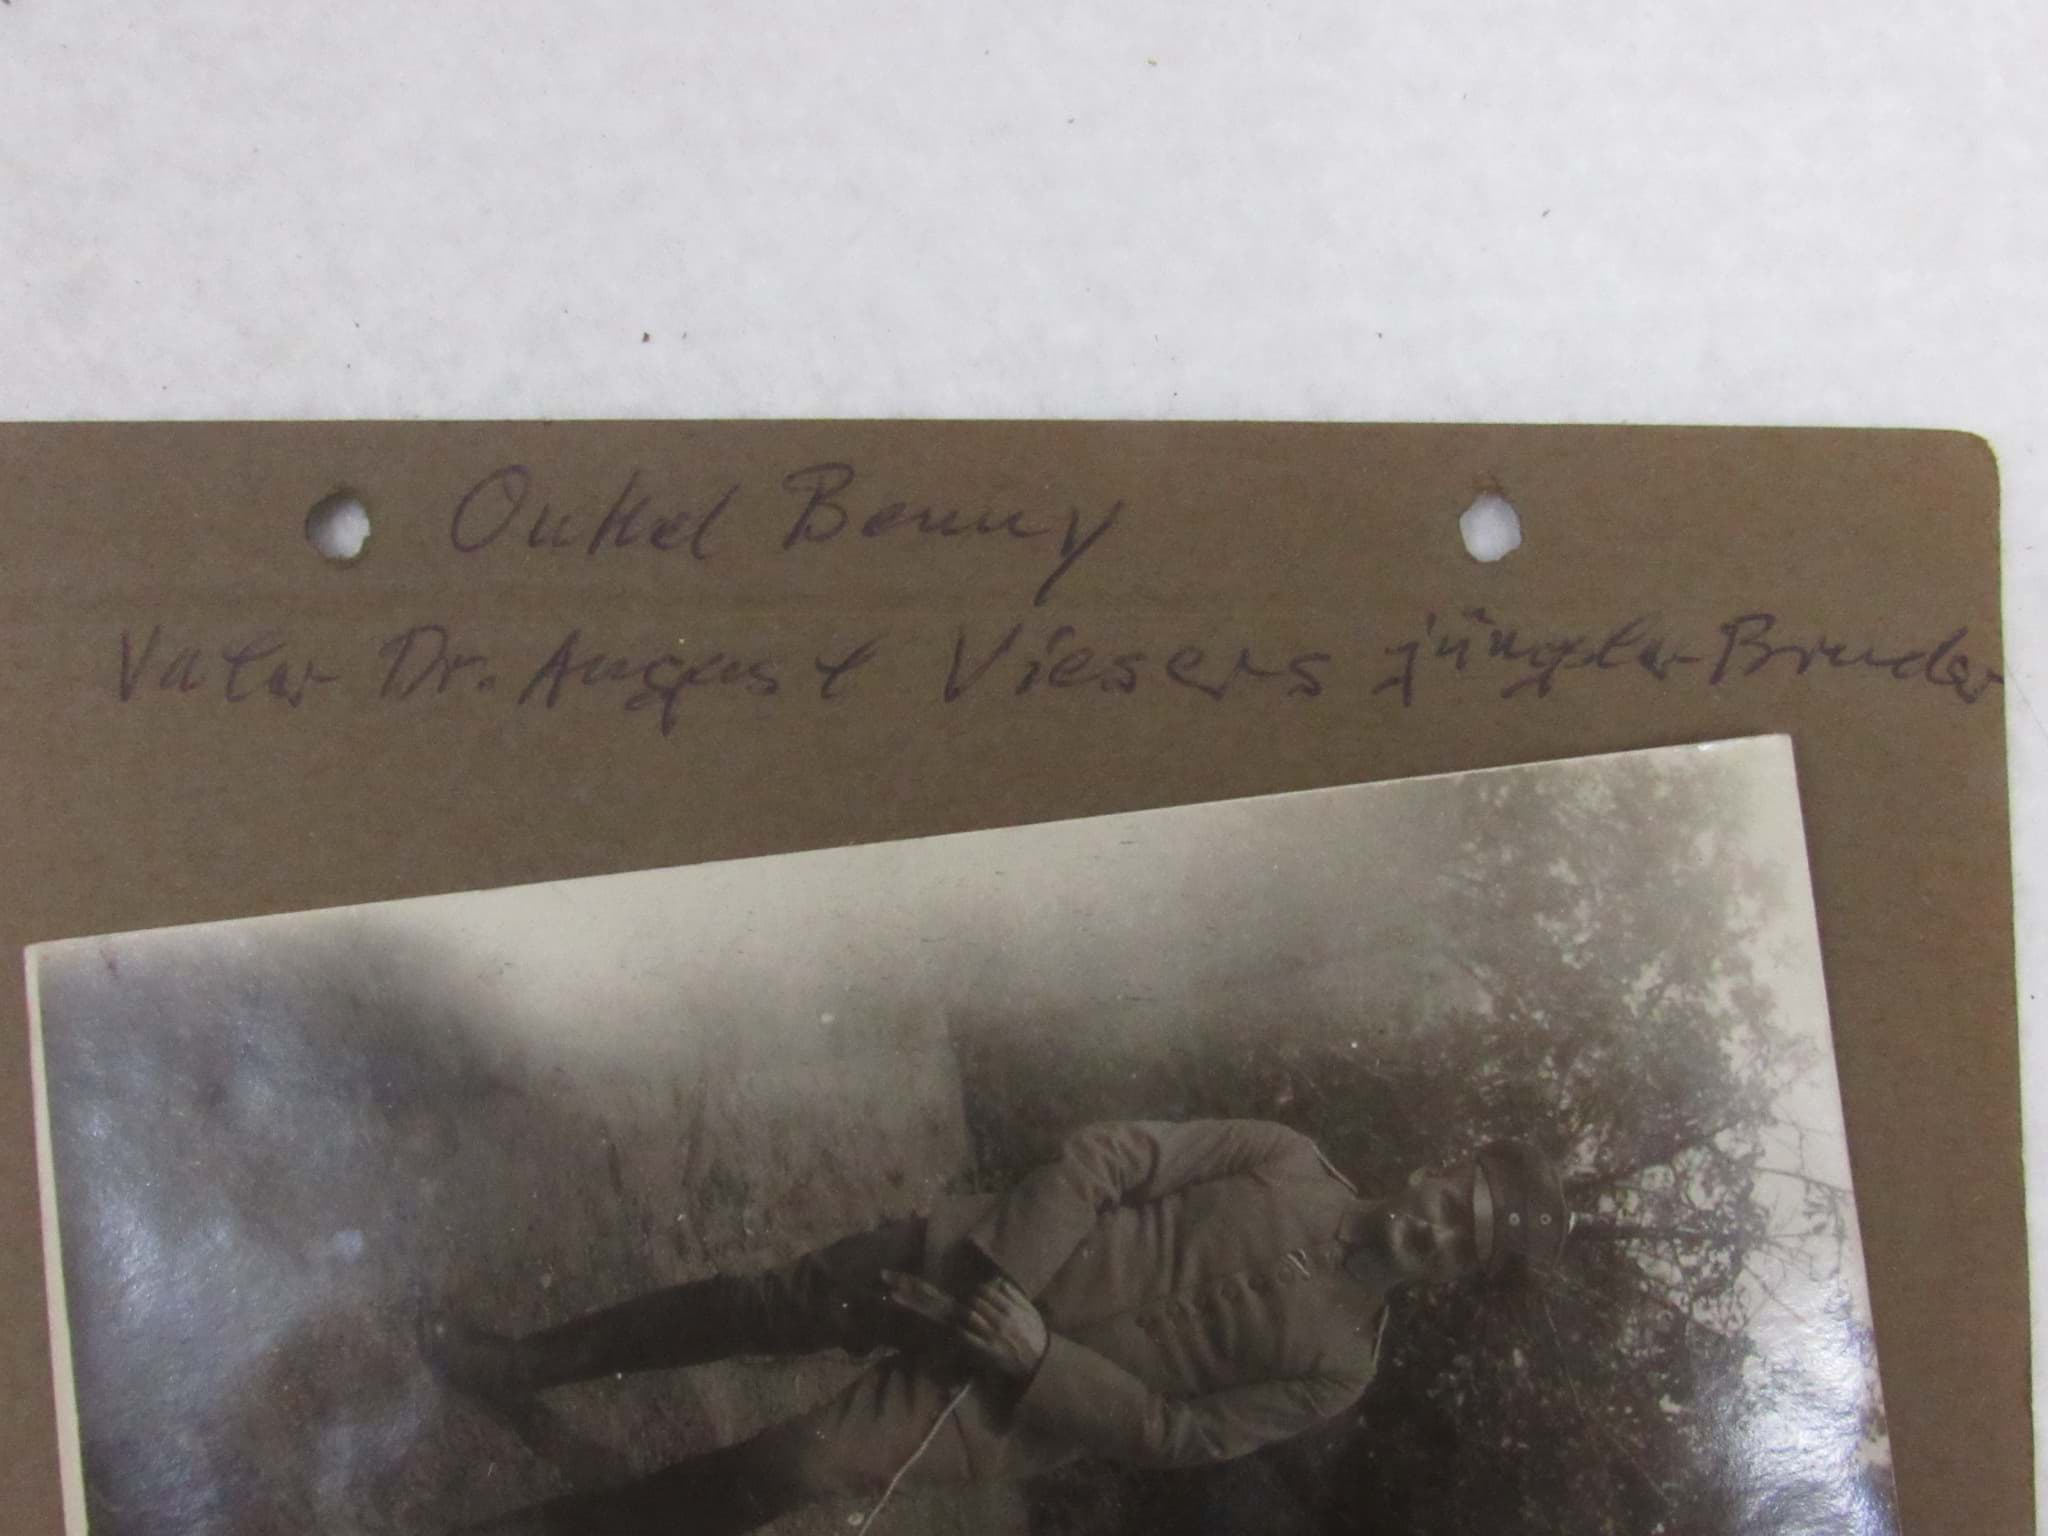 Onkel Benny
Vater Dr. August Viesers jüngster Bruder